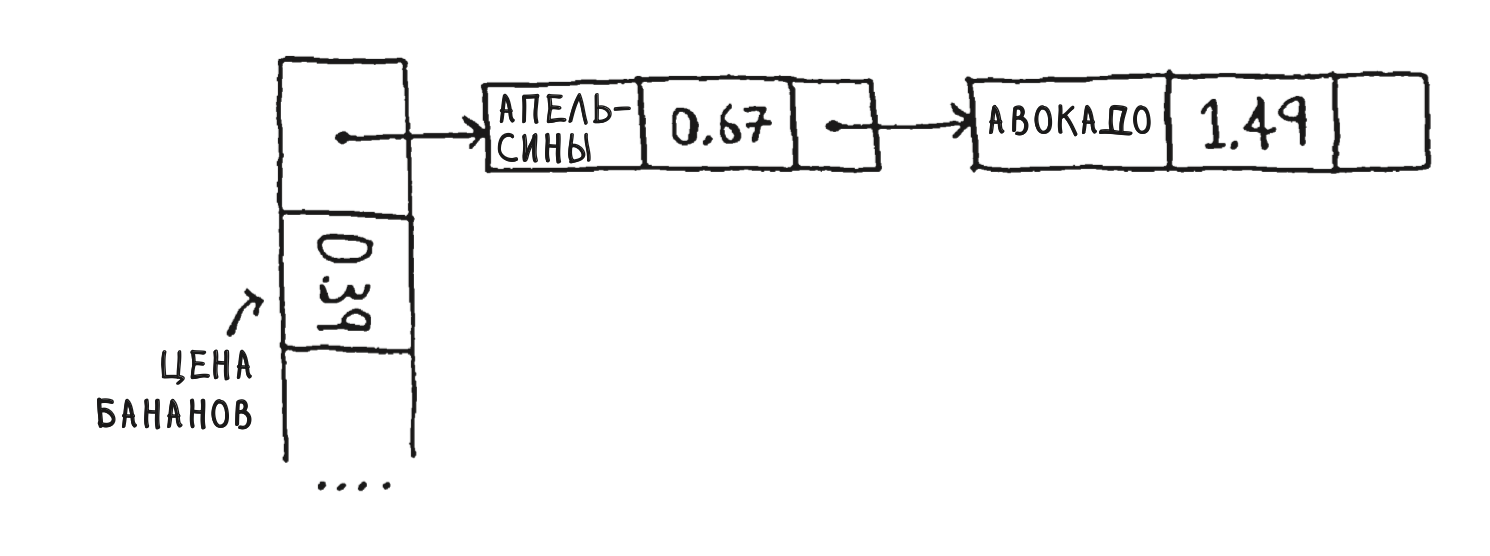 АПЕЛЬ-
СИНЫ
0.67
АВОКАДО
1.49
0.39
ЦЕНА
БАНАНОВ
....